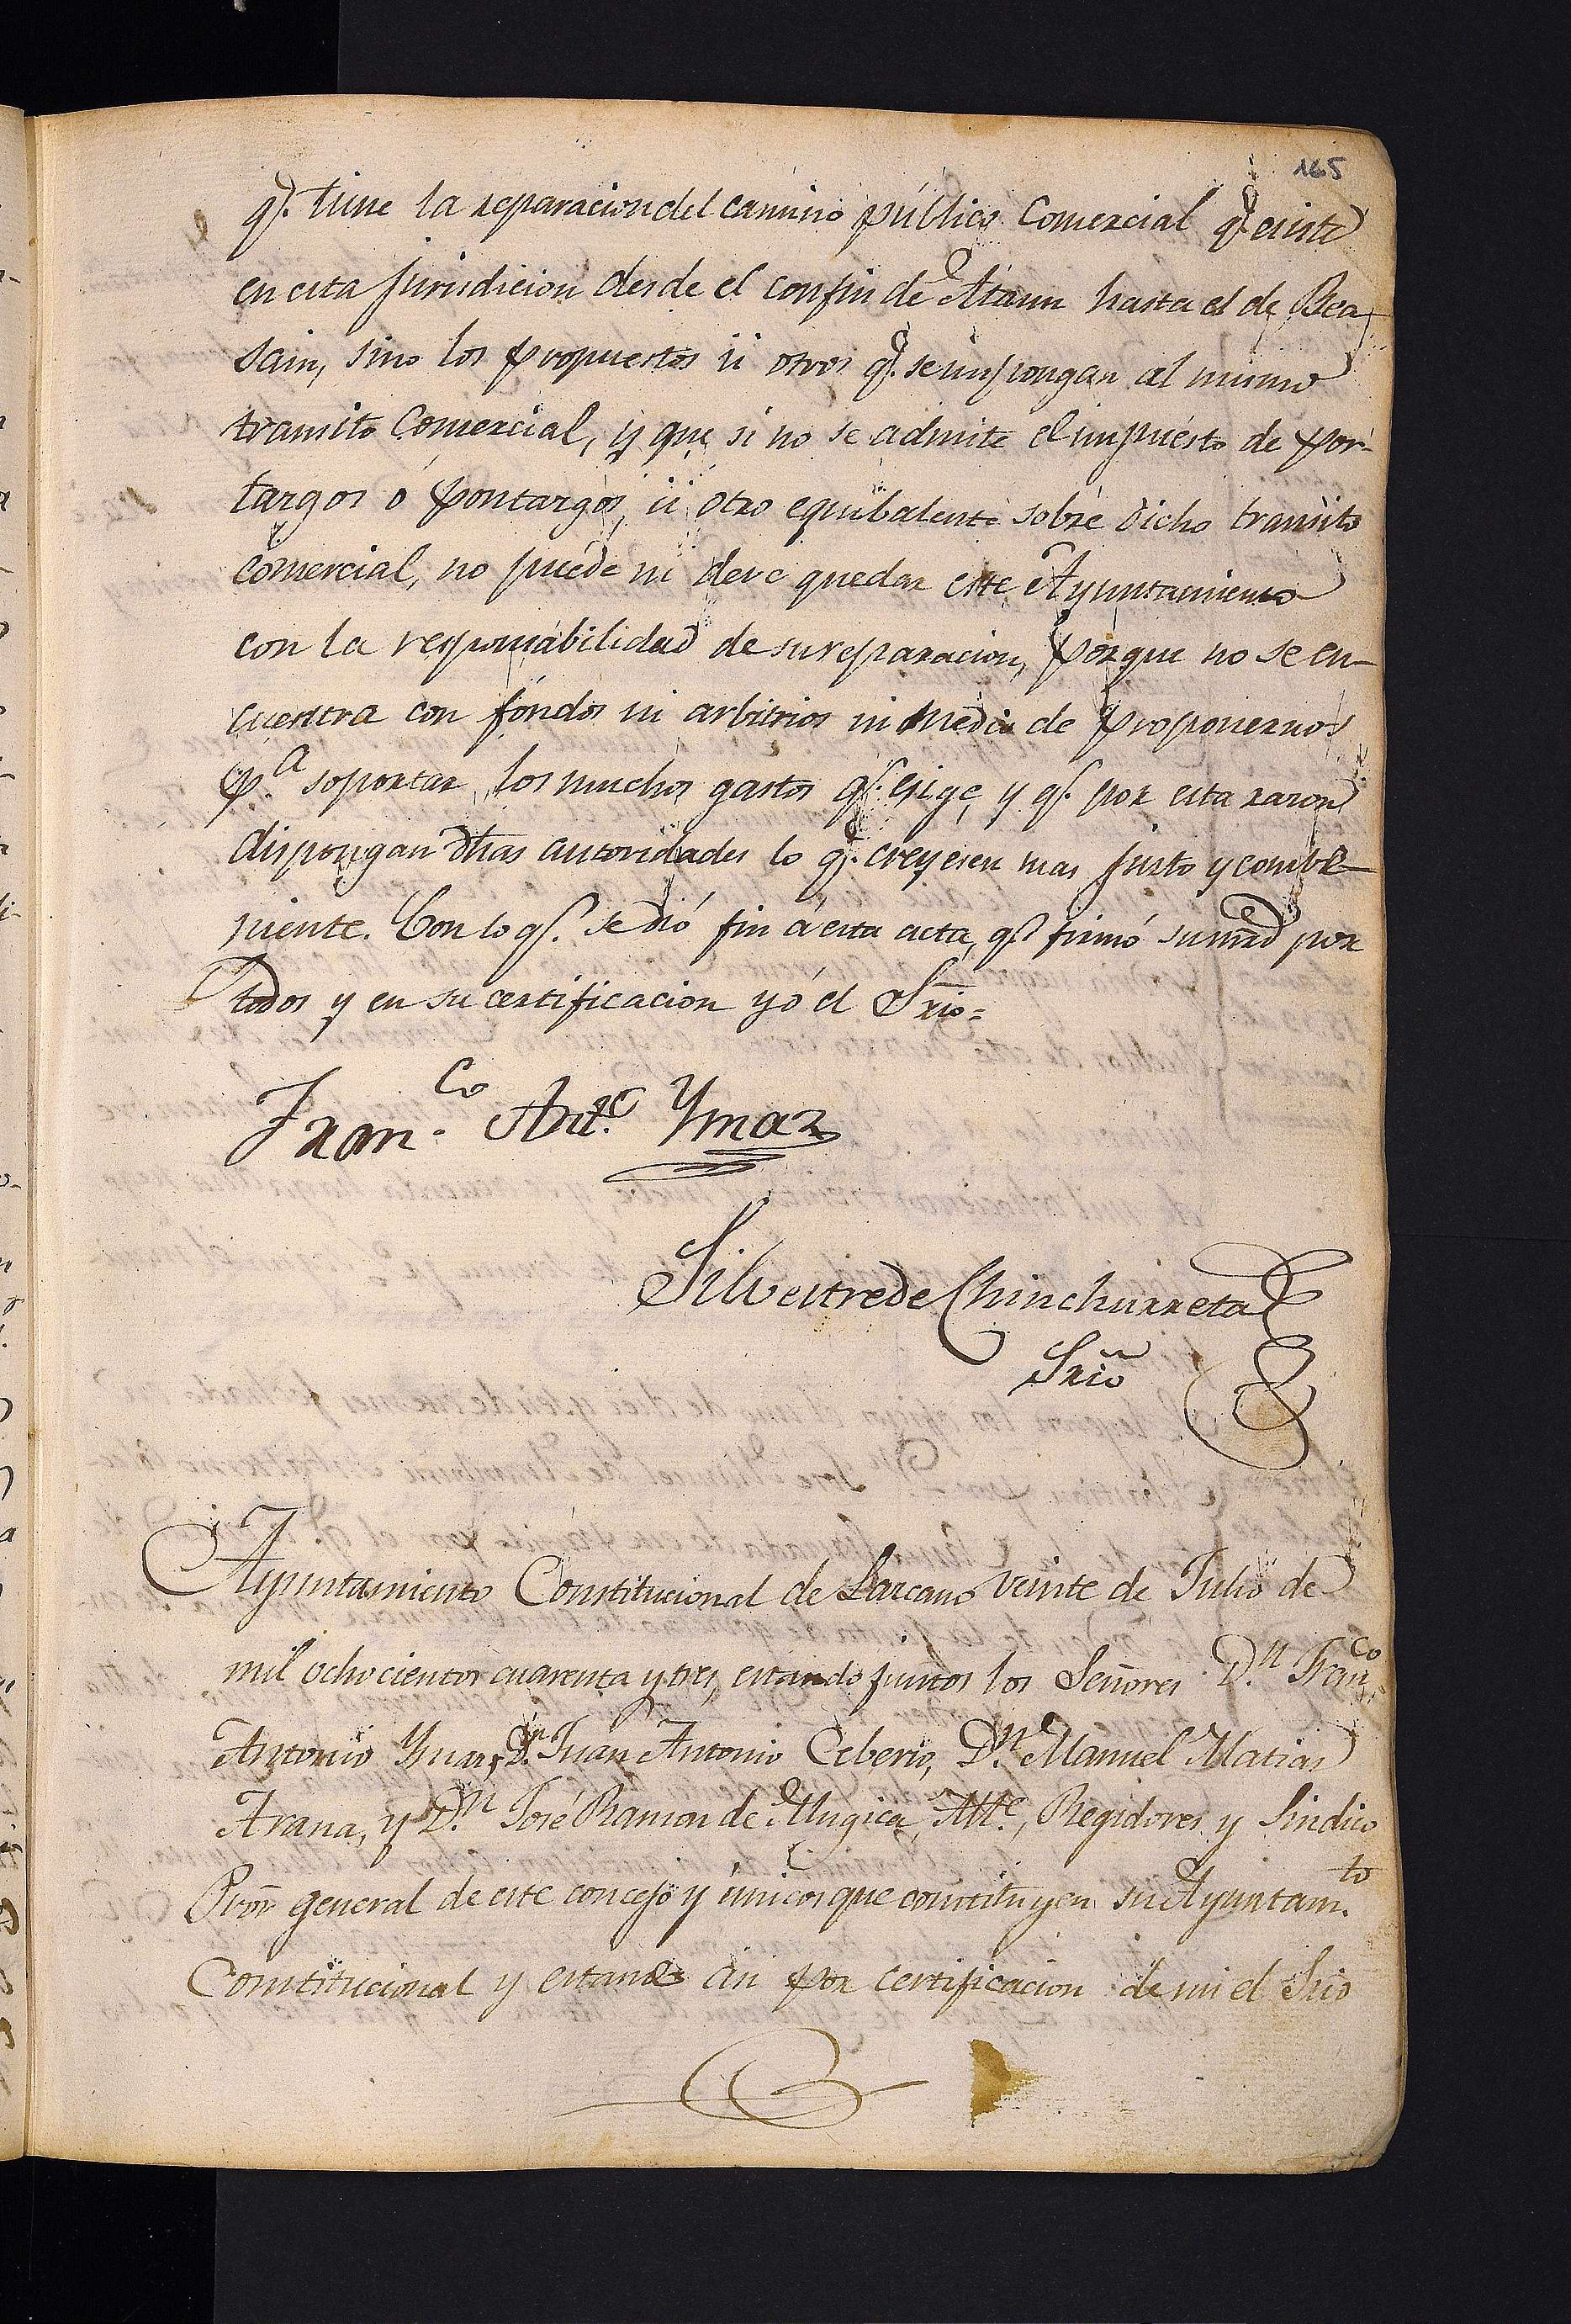 165
q.e tiene la reparacion del camino público Comercial q.e eciste
en esta Jurisdicion desde el confin de Ataun hasta el de Bea
sain, sino los propuestos ú otros q.e se impongan al mismo
transito Comercial, y que si no se admite el impuesto de por-
tazgos ó pontazgos, ú otro equibalente sobre dicho transito
comercial, no puede ni deve quedar este Ayuntamiento
con la responsabilidad de su reparacion, porque no se en-
cuentra con fondos ni arbitrios ni medio de proponernos
p.a soportar los muchos gastos q.e ecige, y q.e por esta razon
dispongan dhas autoridades lo q.e creyesen mas justo y combe
niente. Con lo q.e se dió fin á esta acta, q.e firmó su mrd por
todos y en su certificacion yó el Srio=
Fran.co Ant.o Ymaz
Silvestre de Chinchurreta
Srio
Ayuntamiento Constitucional de Lazcano veinte de Julio de
mil ochocientos cuarenta y tres, estando juntos los Señores D.n Fran.co
Antonio Ymaz, D.n Juan Antonio Ceberio, D.n Manuel Matias
Arana, y D.n José Ramon de Mugica, Alc.e, Regidores y Sindico
Pror general de este concejo y únicos que constituyen su Ayuntam.to
Constitucional y estando asi por certificacion de mi el Srio